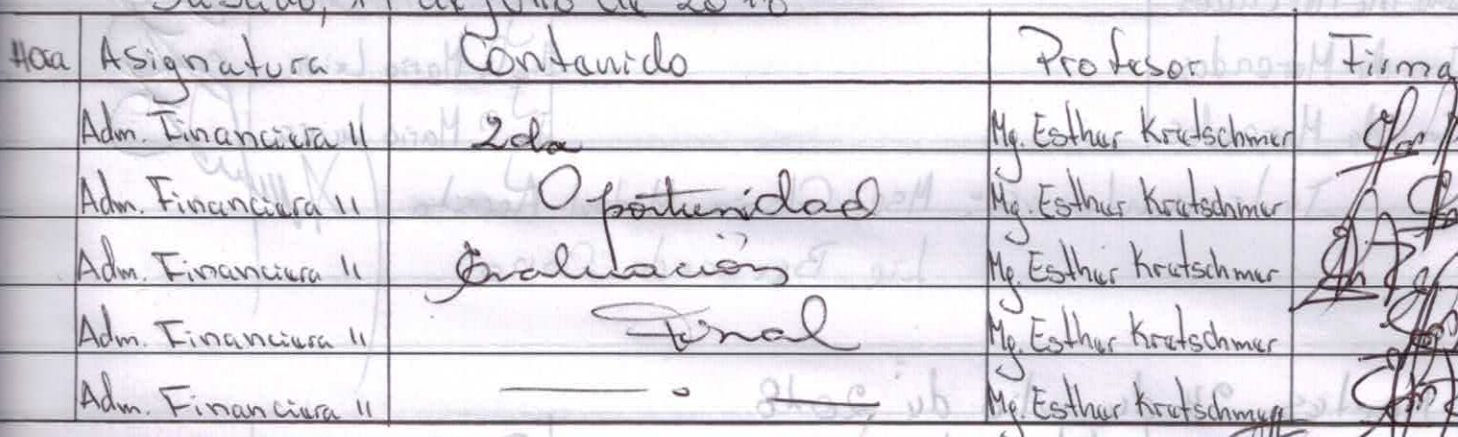 Hora Asignatura Contenido Profesor Firma
Adm. Financiera II 2da Mg. Esther Kretschmer
Adm. Financiera II Oportunidad Mg. Esther Kretschmer
Adm. Financiera II Evaluación Mg. Esther Kretschmer
Adm. Financiera II Final Mg. Esther Kretschmer
Adm. Financiera II Mg. Esther Kretschmer